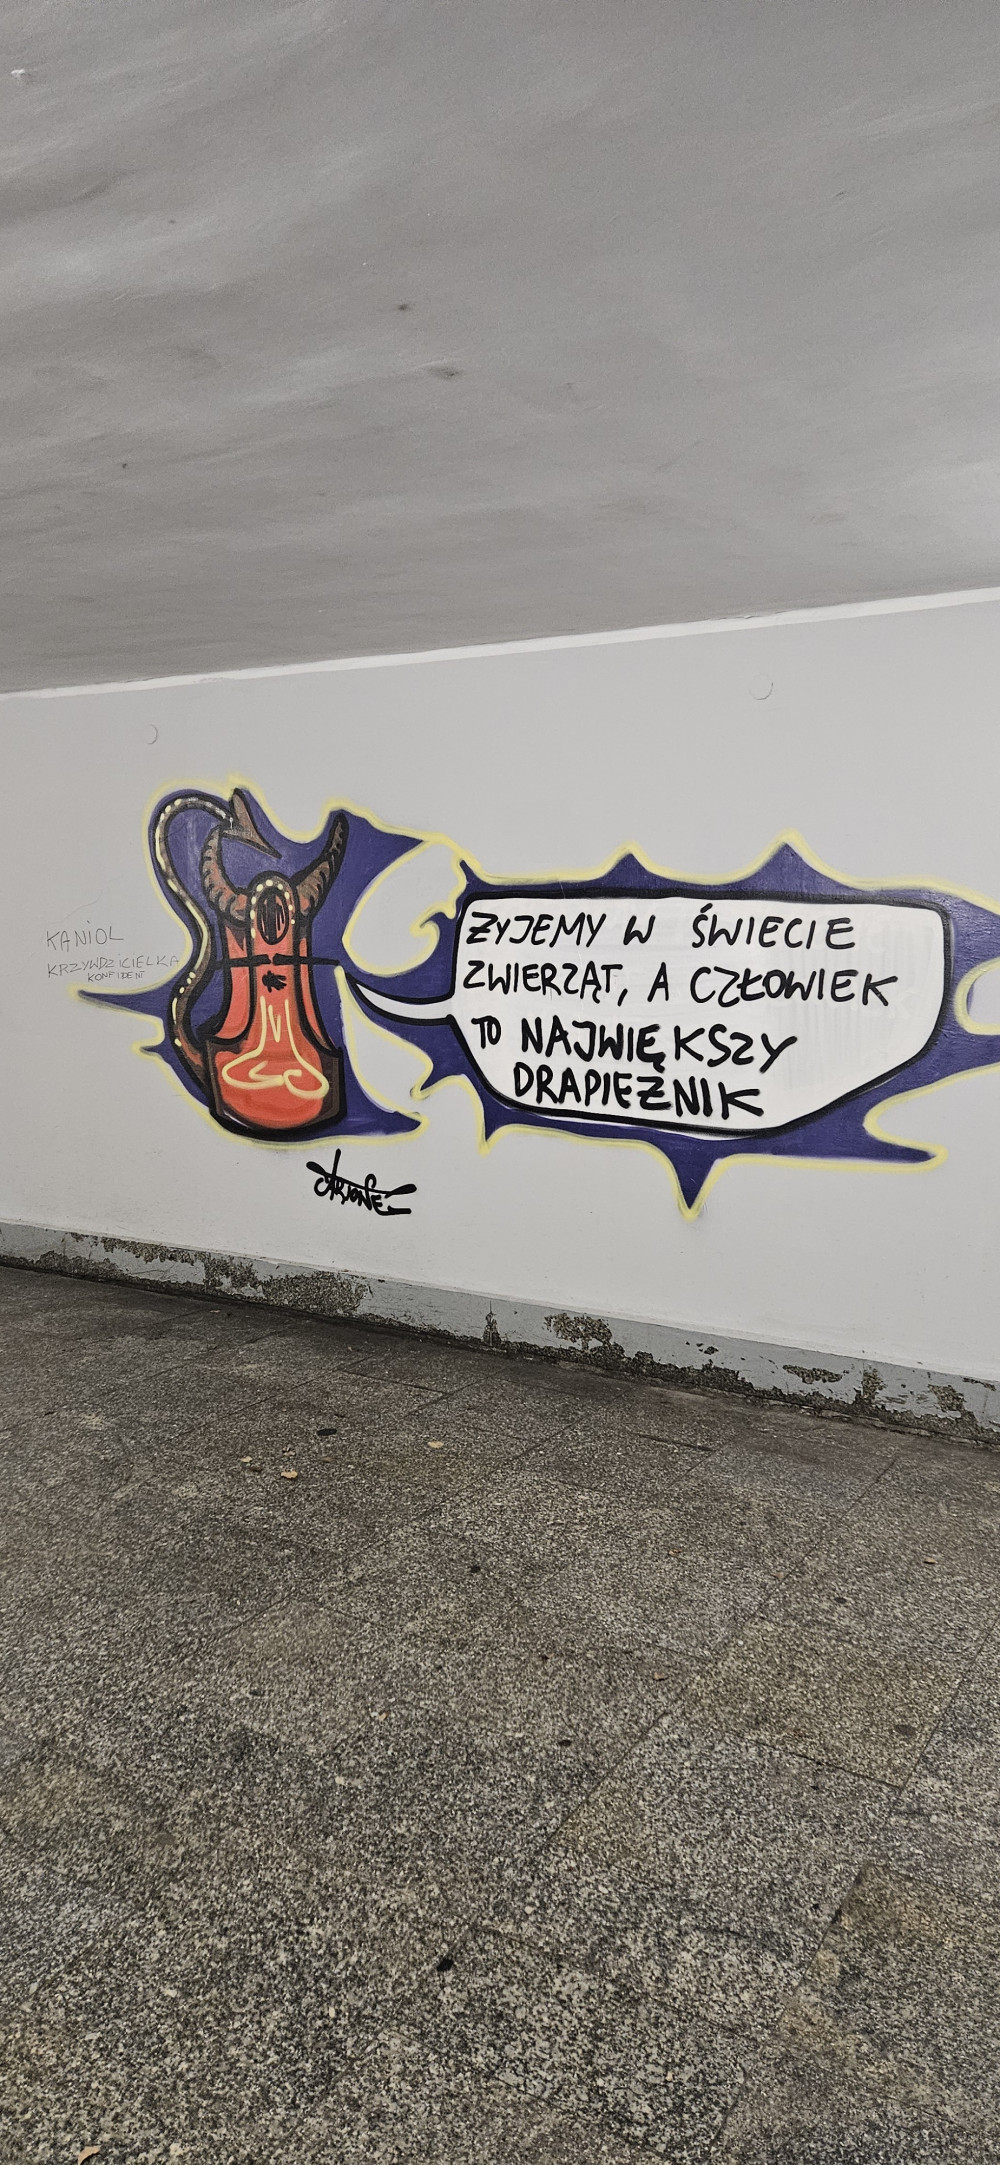 KANIOL
KRZYWDZICIELKA
KONFIDENT
ŻYJEMY W ŚWIECIE
ZWIERZĄT, A CZŁOWIEK
TO NAJWIĘKSZY
DRAPIEŻNIK